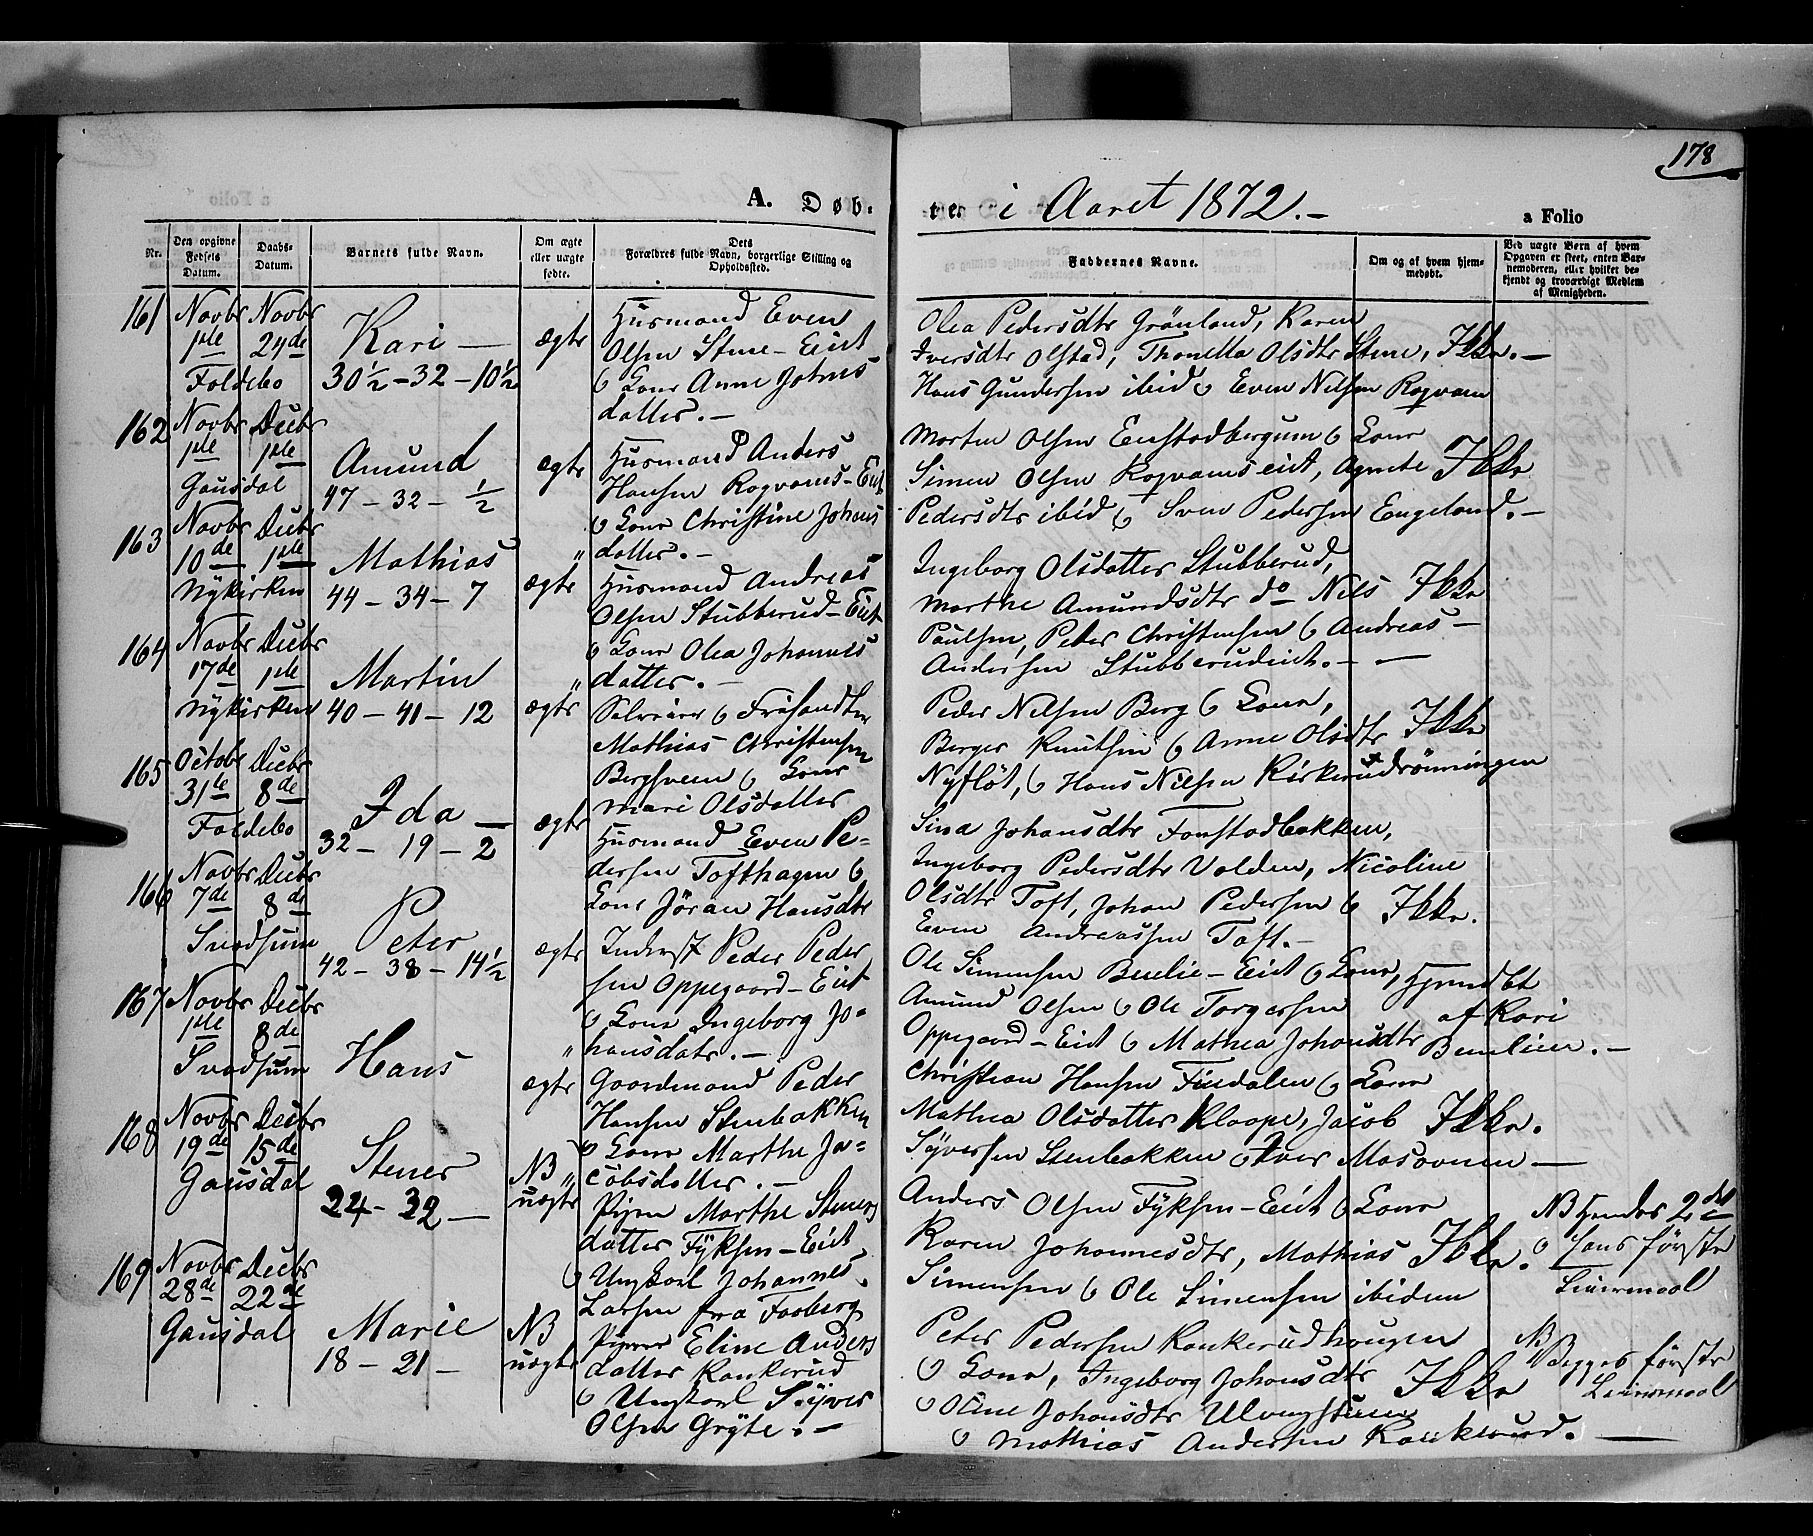 178
A. Døb-
te i Aaret 1872.-
a Folio
Nr.
Den opgivne Fødsels Datum.
Daabs-Datum.
Barnets fulde Navn.
Om ægte eller uægte fødte.
Dets Forældres fulde Navn, borgerlige Stilling og Opholdssted.
Faddernes Navne.
Om og af hvem hjemmedøbt.
Ved uægte Børn af hvem Opgaven er skeet, enten Barnemoderen, eller hvilket bekjendt og troværdigt Medlem af Menigheden.
161
Novbr 1ste
Novbr 24de
Foldebo
Kari —
30½ - 32 - 10½
ægte
Husmand Even
Olsen Stene - Eiet
& Kone Anne Johns
datter. -
Olea Pedersdtr Grönland, Karen
Iversdtr Olstad, Thonetta Olsdtr Stene, Ikke. -
Hans Gundersen ibid & Even Nilsen Rogvam
162
Novbr 1ste
Decbr 1ste
Gausdal
Amund
47 - 32 - ½
ægte
Husmand Anders
Hansen Rogvams - Eiet
& Kone Christine Johans
datter. -
Morten Olsen Enstadbergum & Kone
Simen Olsen Rogvamseiet, Agnete Ikke
Pedersdtr ibid & Sven Pedersen Engeland. -
163
Novbr 10de
Decbr 1ste
Nykirken
Mathias
44 - 34 - 7
ægte
Husmand Andreas
Olsen Stubberud - Eiet
& Kone Olea Johannes
datter. -
Ingeborg Olsdatter Stubberud,
Marthe Amundsdtr do Nils Ikke
Paulsen, Peder Christensen & Andreas -
Andersen Stubberudeiet. - —
164
Novbr 17de
Decbr 1ste
Nykirken
Martin
40 - 41 - 12
ægte
Selveier & Frasandte
Mathias Christensen
Bergsveen & Kone
Mari Olsdatter
Peder Nilsen Berg & Kone,
Berger Knutsen & Anne Olsdtr Ikke
Nyflöt, & Hans Nilsen Kirkerudrönningen
165
Octobr 31te
Decbr 8de
Foldebo
Ida —
32 - 19 - 2
ægte
Husmand Even Pe-
dersen Tofthagen &
Kone Jöran Hansdtr
Sina Johansdtr Fonstadbakken,
Ingeborg Pedersdtr Volden, Nicoline
Olsdtr Toft, Johan Pedersen & Ikke.
Even Andreassen Toft. -
166
Novbr 7de
Decbr 8de
Svadsum
Peter
42 - 38 - 14½
ægte
Inderst Peder Peder
sen Oppegaard - Eiet
& Kone Ingeborg Jo-
hansdatr. -
Ole Simensen Benlie - Eiet & Kone, Hjemdbt
Amund Olsen & Ole Torgersen af Kari
Oppegaard - Eiet & Mathea Johansdtr Benlien. -
167
Novbr 1ste
Decbr 8de
Svadsum
Hans
ægte
Gaardmand Peder
Hansen Stenbakken
& Kone Marthe Ja-
cobsdatter. -
Christian Hansen Findalen & Kone
Mathea Olsdatter Klaape, Jacob Ikke.
Syversen Stenbakken & Iver Mosoveien —
168
Novbr 19de
Decbr 15de
Gausdal
Stener
24 - 32 —
NB
uægte
Pigen Marthe Steners
datter Fyksen - Eiet
& Ungkarl Johannes
Larsen fra Faaberg
Anders Olsen Fyksen - Eiet & Kone
Karen Johannesdtr, Mathias Ikke.
Simensen & Ole Simensen ibidem
NB Hendes 2det
& hans første
Leiermaal
169
Novbr 28de
Decbr 22de
Gausdal
Marie
18 - 21 -
NB
uægte
Pigen Eline Anders
datter Kankerud
& Ungkarl Syver
Olsen Gryte. -
Peter Pedersen Kankerudhougen
& Kone, Ingeborg Johansdtr Ikke
& Oline Johansdtr
& Mathias Andersen Kankerud. —
NB
Begges første
Leiermaal